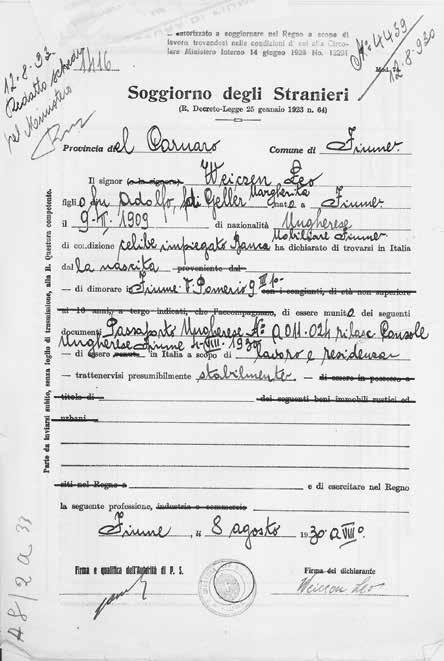 È autorizzato a soggiornare nel Regno a scopo di
lavoro trovandosi nelle condizioni di cui alla Circo-
lare Ministero Interno 14 giugno 1928 No. 12291
No 4439
12.8.930
12.8.93
Redatto scheda
pel Ministero
1416
Mod.
Soggiorno degli Stranieri
(R. Decreto-Legge 25 gennaio 1923 n. 64)
Provincia del Carnaro Comune di Fiume
Il signor o la signora Weiczen Leo
figlio fu Adolfo, di Geller Margherita nato a Fiume
il 9-I-1909 di nazionalità Ungherese
di condizione celibe, impiegato Banca Mobiliare Fiume ha dichiarato di trovarsi in Italia
dal la nascita proveniente dal
— di dimorare in Fiume V. Pomerio 9 III p. con i congiunti, di età non superiore
ai 16 anni, a tergo indicati, che l'accompagnano, di essere munito dei seguenti
documenti Passaporto Ungherese No A 011-024 rilasc. Console
Ungherese Fiume 1930
— di essere in Italia a scopo di lavoro e residenza
— trattenervisi presumibilmente stabilmente di essere in possesso a
titolo di dei seguenti beni immobili rustici ed
urbani
siti nel Regno e e di esercitare nel Regno
la seguente professione, industria o commercio
Fiume, li 8 agosto 1930 a VIII°
Firma e qualifica dell'Autorità di P. S. Firma del dichiarante
Weiczen Leo
Parte da inviarsi subito, senza foglio di trasmissione, alla R. Questura competente.
A8/2 a 33